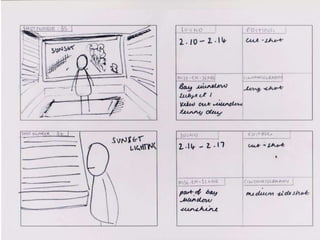 SHOT NUMBER: 35
SUNSET
SOUND
2.10 - 2.14
EDITING
cut-shot
MISE-EN-SCENE
Bay window
Subject 1
View out window
sunny day
CINEMATOGRAPHY
long shot
SHOT NUMBER: 36
SUNSET
LIGHTING
SOUND
2.14 - 2.17
EDITING
cut-shot
MISE-EN-SCENE
part of bay
window
sunshine
CINEMATOGRAPHY
medium side shot